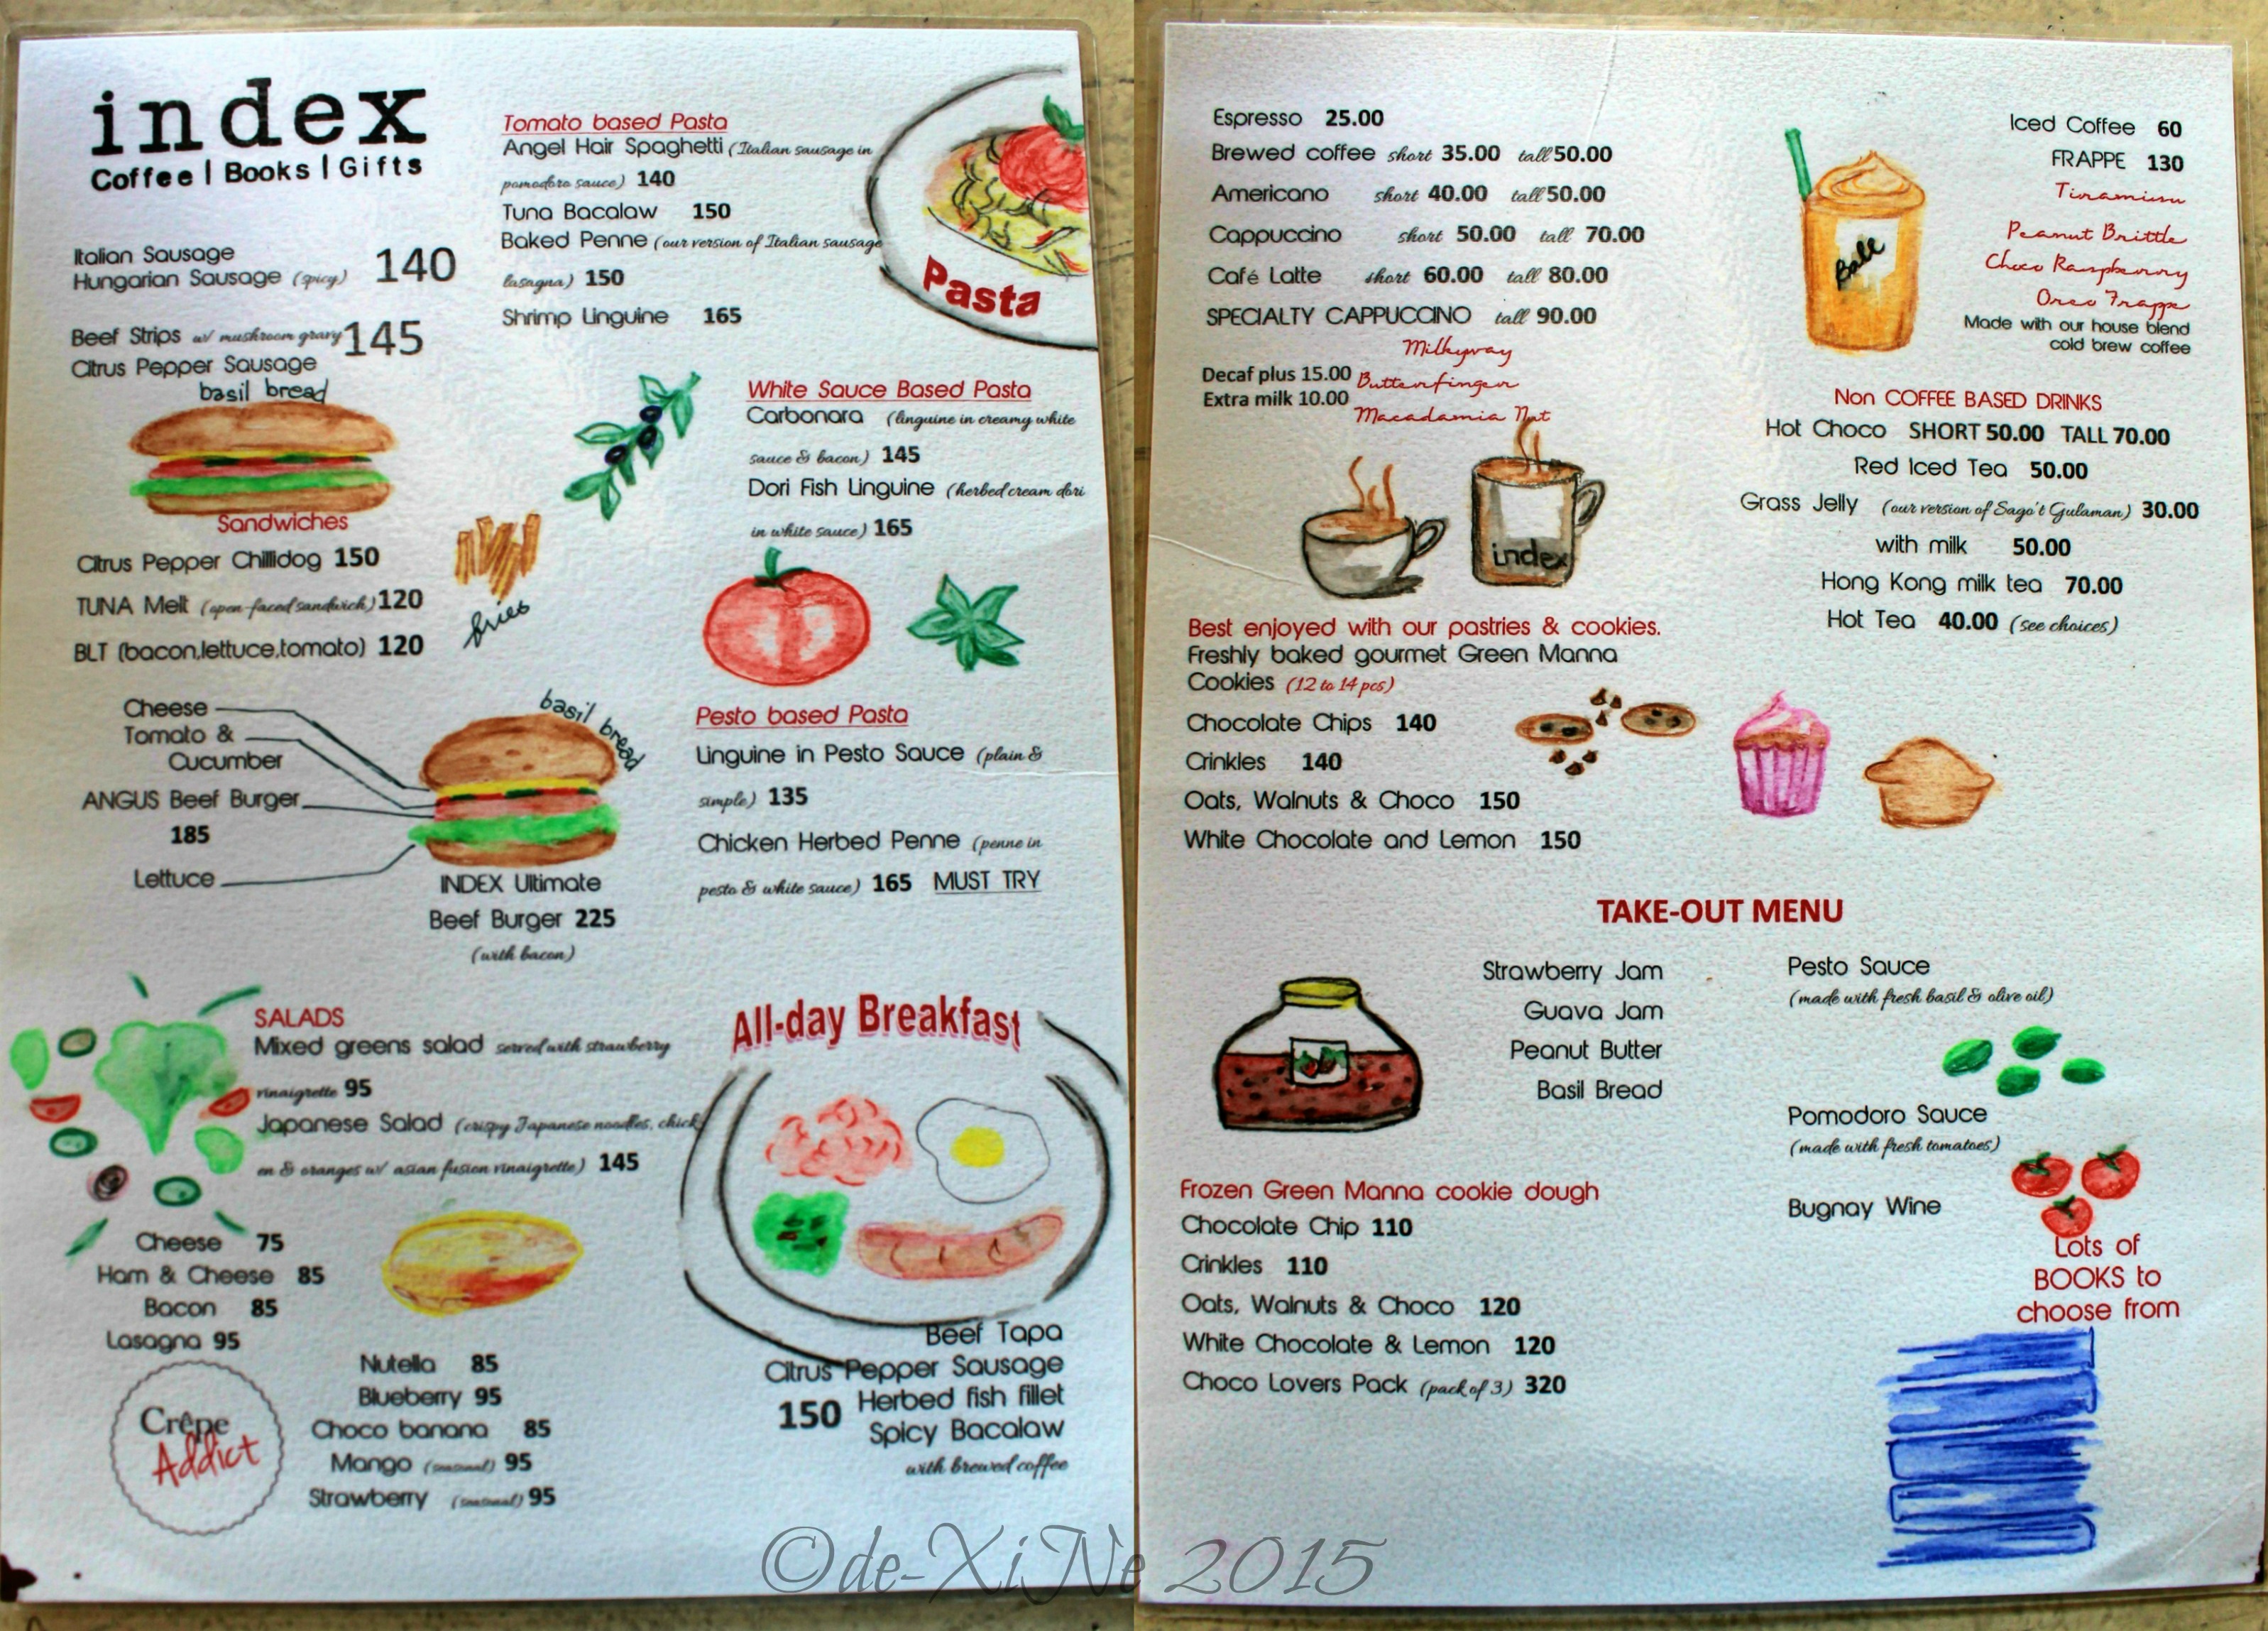 index
Coffee | Books | Gifts
Italian Sausage
Hungarian Sausage (spicy) 140
Beef Strips w/ mushroom gravy 145
Citrus Pepper Sausage
basil bread
Sandwiches
Citrus Pepper Chillidog 150
TUNA Melt (open-faced sandwich) 120
BLT (bacon,lettuce,tomato) 120
fries
Cheese
Tomato &
Cucumber
ANGUS Beef Burger
185
Lettuce
basil bread
INDEX Ultimate
Beef Burger 225
(with bacon)
Tomato based Pasta
Angel Hair Spaghetti (Italian sausage in
pomodoro sauce) 140
Tuna Bacalaw 150
Baked Penne (our version of Italian sausage
lasagna) 150
Shrimp Linguine 165
Pasta
White Sauce Based Pasta
Carbonara (linguine in creamy white
sauce & bacon) 145
Dori Fish Linguine (herbed cream dori
in white sauce) 165
Pesto based Pasta
Linguine in Pesto Sauce (plain &
simple) 135
Chicken Herbed Penne (penne in
pesto & white sauce) 165 MUST TRY
SALADS
Mixed greens salad served with strawberry
vinaigrette 95
Japanese Salad (crispy Japanese noodles, chick
en & oranges w/ asian fusion vinaigrette) 145
Cheese 75
Ham & Cheese 85
Bacon 85
Lasagna 95
Crêpe
Addict
Nutella 85
Blueberry 95
Choco banana 85
Mango (seasonal) 95
Strawberry (seasonal) 95
All-day Breakfast
Beef Tapa
Citrus Pepper Sausage
150 Herbed fish fillet
Spicy Bacalaw
with brewed coffee
Espresso 25.00
Brewed coffee short 35.00 tall 50.00
Americano short 40.00 tall 50.00
Cappuccino short 50.00 tall 70.00
Café Latte short 60.00 tall 80.00
SPECIALTY CAPPUCCINO tall 90.00
Milkyway
Butterfinger
Macadamia Nut
Decaf plus 15.00
Extra milk 10.00
index
Iced Coffee 60
FRAPPE 130
Tiramisu
Peanut Brittle
Choco Raspberry
Oreo Frappe
Made with our house blend
cold brew coffee
Non COFFEE BASED DRINKS
Hot Choco SHORT 50.00 TALL 70.00
Red Iced Tea 50.00
Grass Jelly (our version of Sago't Gulaman) 30.00
with milk 50.00
Hong Kong milk tea 70.00
Hot Tea 40.00 (see choices)
Best enjoyed with our pastries & cookies.
Freshly baked gourmet Green Manna
Cookies (12 to 14 pcs)
Chocolate Chips 140
Crinkles 140
Oats, Walnuts & Choco 150
White Chocolate and Lemon 150
TAKE-OUT MENU
Strawberry Jam
Guava Jam
Peanut Butter
Basil Bread
Pesto Sauce
(made with fresh basil & olive oil)
Pomodoro Sauce
(made with fresh tomatoes)
Bugnay Wine
Frozen Green Manna cookie dough
Chocolate Chip 110
Crinkles 110
Oats, Walnuts & Choco 120
White Chocolate & Lemon 120
Choco Lovers Pack (pack of 3) 320
Lots of
BOOKS to
choose from
©de-XiNe 2015